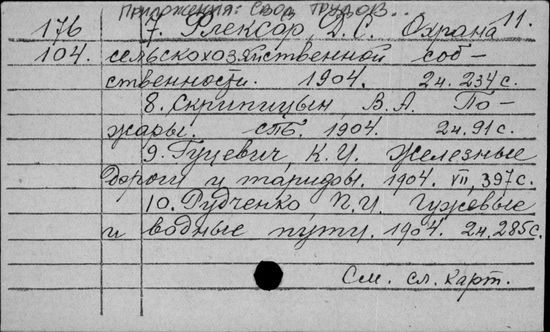 Приложения: Свод трудов... 11.
176 7. Флексор, Д.С. Охрана
104. сельскохозяйственной соб-
ственности. 1904. 2н. 234 с.
8. Скрипицын, В.А. По-
жары. СПб. 1904. 2н. 91 с.
9. Гуцевич, К.И. Железные
дороги и тарифы. 1904. VII, 397 с.
10. Рудченко, П.И. Гужевые
и водные пути. 1904. 2н. 285 с.
См. сл. карт.